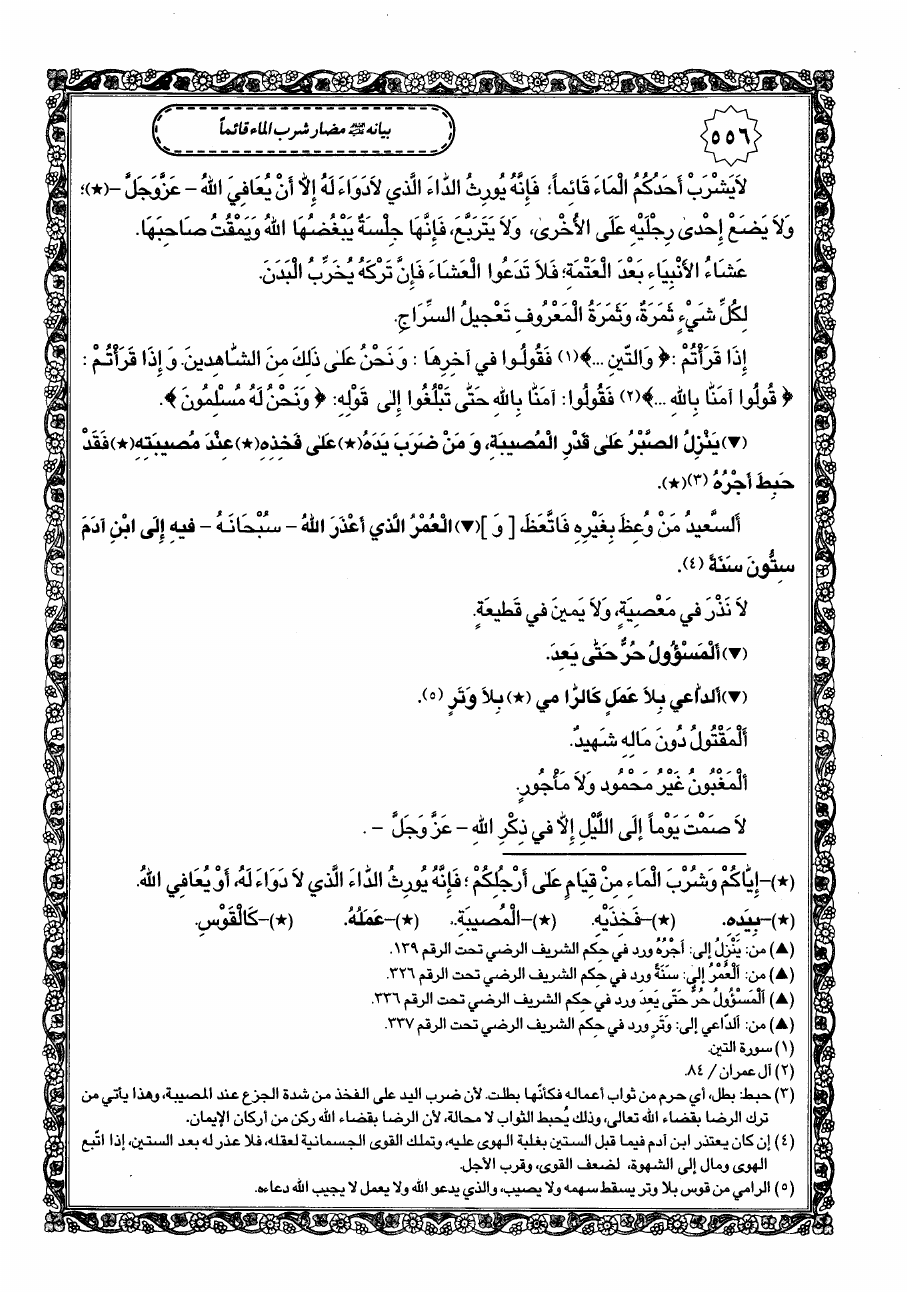 ٥٥٦
بيانه عليه السلام مضار شرب الماء قائماً
لاَيَشْرَبْ أَحَدُكُمُ الْمَاءَ قَائِماً؛ فَإِنَّهُ يُورِثُ الدَّاءَ الَّذي لاَدَوَاءَ لَهُ إِلاَّ أَنْ يُعَافِيَ اللهُ – عَزَّوَجَلَّ –(★)؛
وَلاَ يَضَعْ إِحْدى رِجْلَيْهِ عَلَى الأُخْرىٰ، وَلاَ يَتَرَبَّعَ، فَإِنَّهَا جِلْسَةٌ يَبْغُضُهَا اللهُ وَيَمْقُتُ صَاحِبَهَا.
عَشَاءُ الأَنْبِيَاءِ بَعْدَ الْعَتْمَةِ؛ فَلاَ تَدَعُوا الْعَشَاءَ فَإِنَّ تَرْكَهُ يُخَرِّبُ الْبَدَنَ.
لِكُلِّ شَيْءٍ ثَمَرَةٌ، وَثَمَرَةُ الْمَعْرُوفِ تَعْجيلُ السِّرَاجِ.
إِذَا قَرَأْتُمْ :﴿ وَالتّينِ ...﴾(١) فَقُولُوا في آخِرِهَا : وَنَحْنُ عَلىٰ ذَلِكَ مِنَ الشَّاهِدينَ. وَإِذَا قَرَأْتُمْ :
﴿ قُولُوا آمَنَّا بِاللهِ ...﴾(٢) فَقُولُوا: آمَنَّا بِاللهِ حَتّىٰ تَبْلُغُوا إِلىٰ قَوْلِهِ: ﴿ وَنَحْنُ لَهُ مُسْلِمُونَ ﴾.
(▼)يَنْزِلُ الصَّبْرُ عَلىٰ قَدْرِ الْمُصيبَةِ، وَ مَنْ ضَرَبَ يَدَهُ(★)عَلىٰ فَخِذِهِ(★)عِنْدَ مُصيبَتِهِ(★)فَقَدْ
حَبِطَ أَجْرُهُ (٣)(★).
أَلسَّعيدُ مَنْ وُعِظَ بِغَيْرِهِ فَاتَّعَظَ [ وَ ](▼)الْعُمْرُ الَّذي أَعْذَرَ اللهُ – سُبْحَانَهُ – فيهِ إِلَى ابْنِ آدَمَ
سِتُّونَ سَنَةً (٤).
لاَ نَذْرَ في مَعْصِيَةٍ، وَلاَ يَمينَ في قَطيعَةٍ.
(▼)أَلْمَسْؤُولُ حُرٌّ حَتّىٰ يَعِدَ.
(▼)أَلدَّاعي بِلاَ عَمَلٍ كَالرَّامي (★)بِلاَ وَتَرٍ (٥).
أَلْمَقْتُولُ دُونَ مَالِهِ شَهيدٌ.
أَلْمَغْبُونُ غَيْرُ مَحْمُودٍ وَلاَ مَأْجُورٍ.
لاَ صَمْتَ يَوْماً إِلَى اللَّيْلِ إِلاَّ في ذِكْرِ اللهِ – عَزَّ وَجَلَّ – .
(★)–إِيَّاكُمْ وَشُرْبَ الْمَاءِ مِنْ قِيَامٍ عَلىٰ أَرْجُلِكُمْ ؛ فَإِنَّهُ يُورِثُ الدَّاءَ الَّذي لاَ دَوَاءَ لَهُ، أَوْ يُعَافِي اللهُ.
(★)–بِيَدِهِ. (★)–فَخِذَيْهِ. (★)–الْمُصيبَةِ. (★)–عَمَلُهُ. (★)–كَالْقَوْسِ.
(▲) من: يَنْزِلُ إلى: أَجْرُهُ ورد في حِكم الشريف الرضي تحت الرقم ١٣٩.
(▲) من: أَلْعُمْرُ إلى: سَنَةً ورد في حِكم الشريف الرضي تحت الرقم ٣٢٦.
(▲) أَلْمَسْؤُولُ حُرٌّ حَتّىٰ يَعِدَ ورد في حِكم الشريف الرضي تحت الرقم ٣٣٦.
(▲) من: أَلدَّاعي إلى: وَتَرٍ ورد في حِكم الشريف الرضي تحت الرقم ٣٣٧.
(١) سورة التين.
(٢) آل عمران / ٨٤.
(٣) حبط: بطل، أي حرم من ثواب أعماله فكأنّها بطلت. لأن ضرب اليد على الفخذ من شدة الجزع عند المصيبة، وهذا يأتي من
ترك الرضا بقضاء الله تعالى، وذلك يُحبط الثواب لا محالة، لأن الرضا بقضاء الله ركن من أركان الإيمان.
(٤) إن كان يعتذر ابن آدم فيما قبل الستين بغلبة الهوى عليه، وتملك القوى الجسمانية لعقله، فلا عذر له بعد الستين، إذا اتّبع
الهوى ومال إلى الشهوة، لضعف القوى، وقرب الأجل.
(٥) الرامي من قوس بلا وتر يسقط سهمه ولا يصيب، والذي يدعو الله ولا يعمل لا يجيب الله دعاءه.